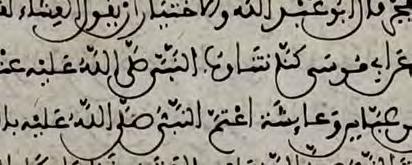 قال ابو عبد الله والاختيار ان يقول العشاء
عن ابي موسى كنا نتناوب النبي صلى الله عليه عند
عباس وعائشة اعتم النبي صلى الله عليه